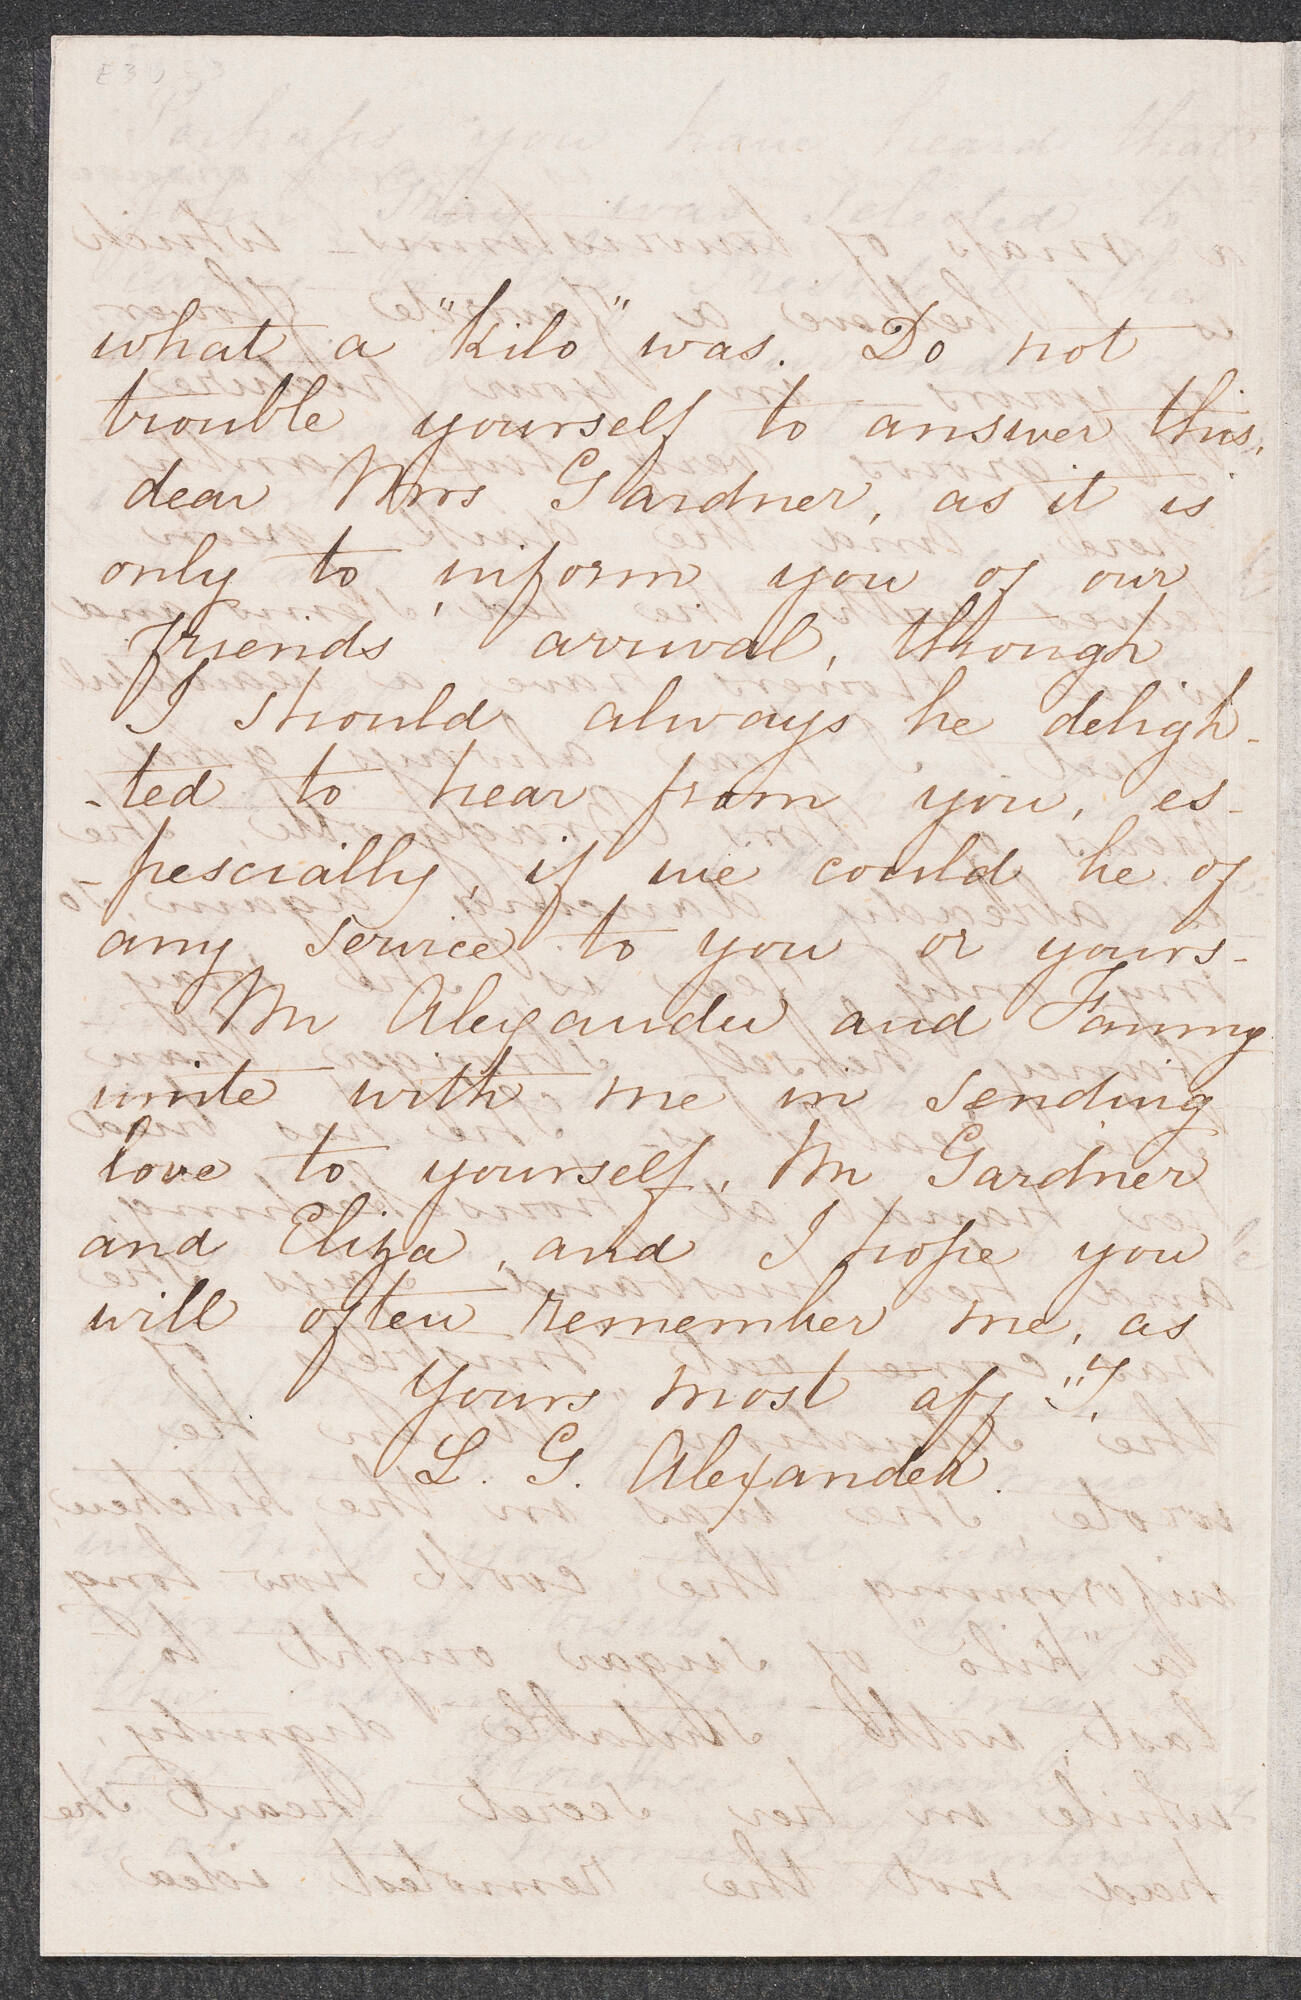 what a "kilo" was. Do not
trouble yourself to answer this,
dear Mrs Gardner, as it is
only to inform you of our
friends' arrival, though
I should always be deligh-
-ted to hear from you, es-
-pescially, if we could be of
any service to you or yours-
Mr Alexander and Fanny
unite with me in sending
love to yourself, Mr Gardner
and Eliza, and I hope you
will often remember me, as
Yours most aff "y.
L. G. Alexander.